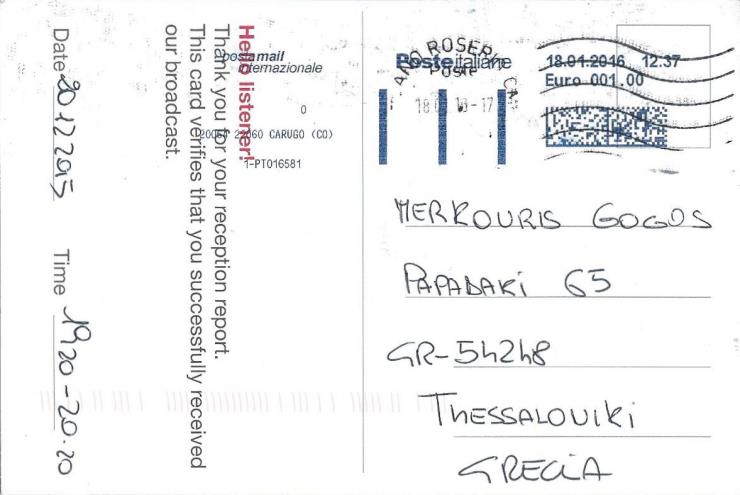 Hello listener!
Thank you for your reception report.
This card verifies that you successfully received
our broadcast.
Date 20 12 2015 Time 19 20 - 20.20
postamail
internazionale
0
22060 CARUGO (CO)
1-PT016581
Posteitaliane
18.01.2016 12.37
Euro 001.00
Poste
MERKOURIS GOGOS
PAPADAKI 65
GR-54248
THESSALONIKI
GRECIA